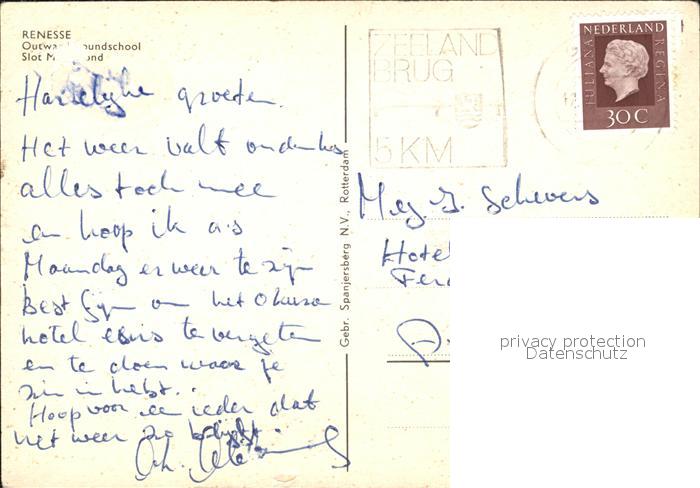 RENESSE
Outward Boundschool
Slot M ond
Hartelijke groeten.
Het weer valt ondanks
alles toch mee
en hoop ik a.s
Maandag er weer te zijn
Best fijn om het Okura
hotel eens te vergeten
en te doen waar je
zin in hebt..
Hoop voor een ieder dat
het weer zo blijft
Gebr. Spanjersberg N.V., Rotterdam
ZEELAND
BRUG
5 KM
NEDERLAND
JULIANA
REGINA
30 C
Mej. J. Schevers
Hotel
Fer
privacy protection
Datenschutz